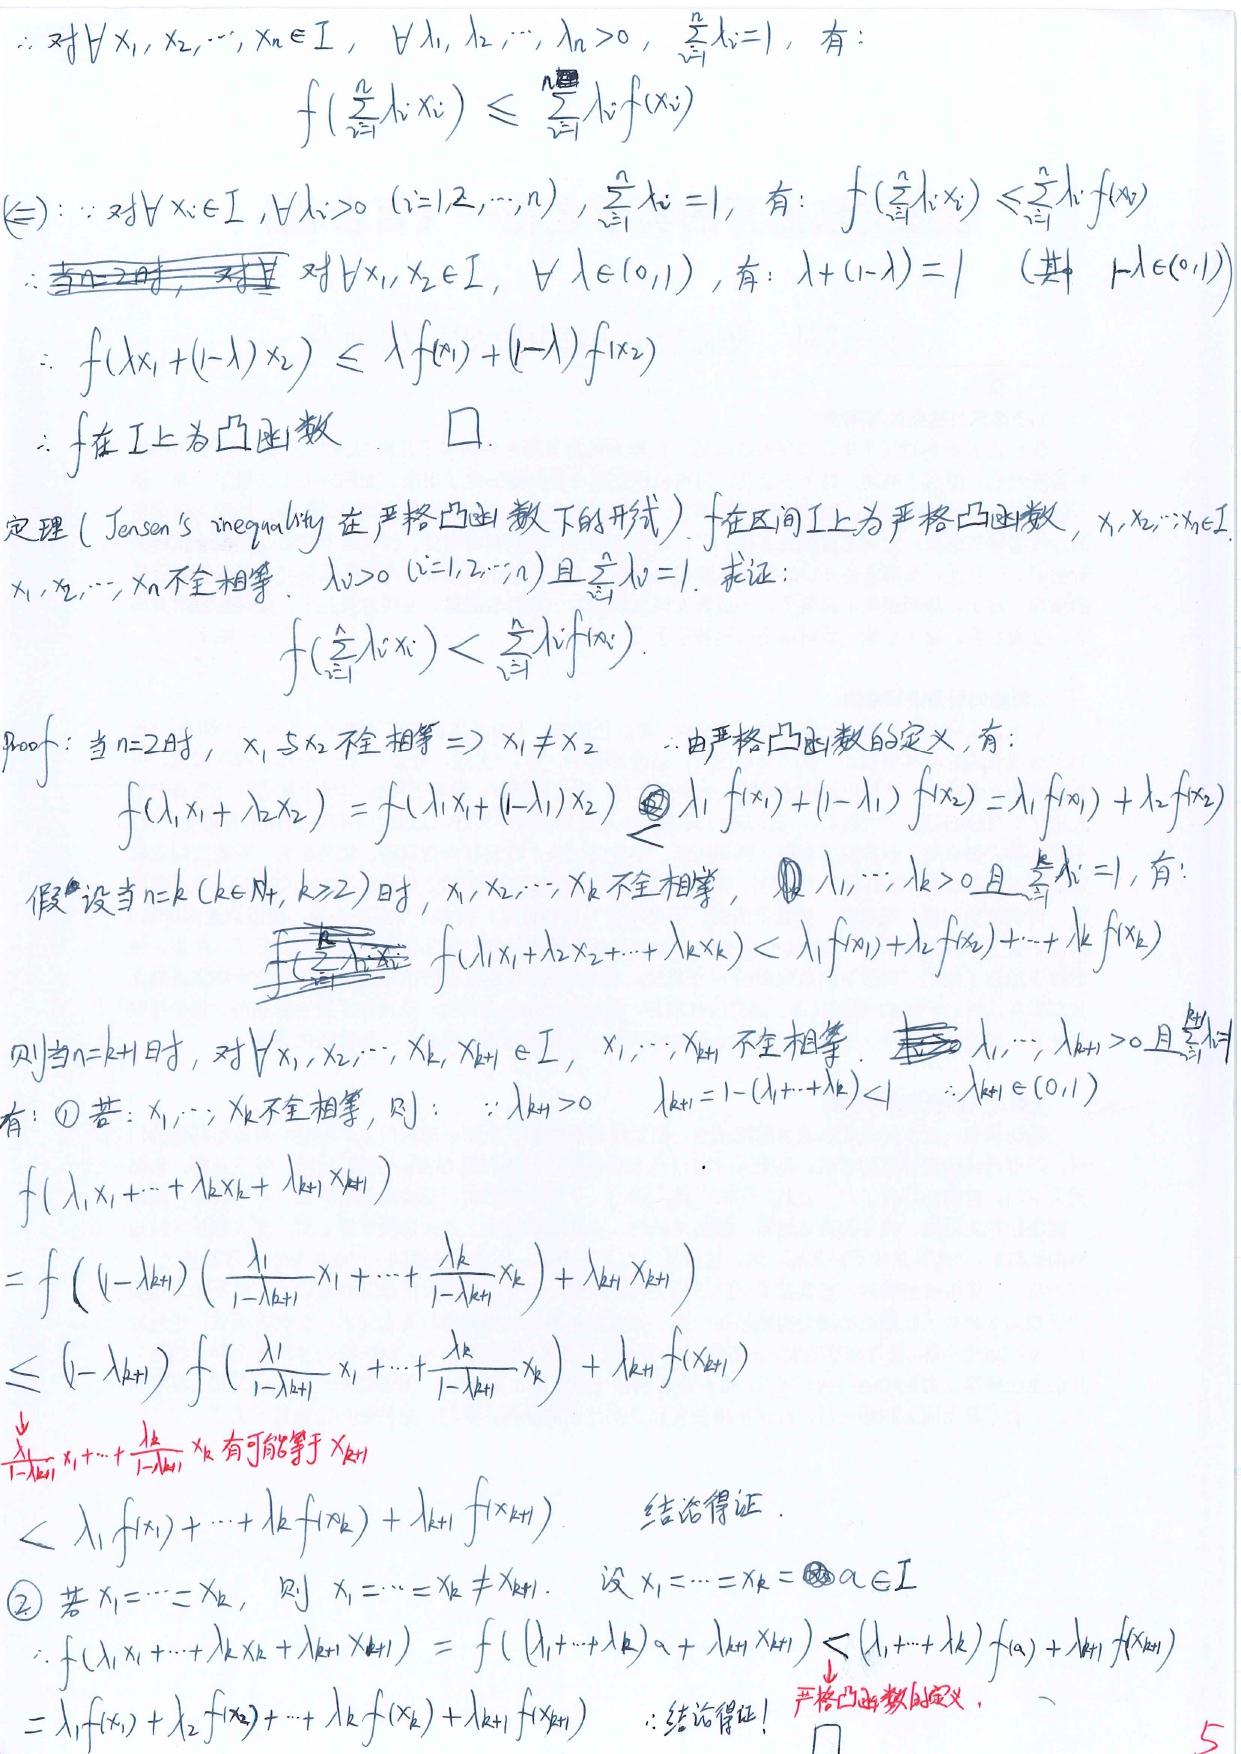 ∴ 对∀ x₁, x₂, ⋯, xₙ ∈ I, ∀ λ₁, λ₂, ⋯, λₙ > 0, ∑ᵢ₌₁ⁿ λᵢ = 1, 有:
f(∑ᵢ₌₁ⁿ λᵢxᵢ) ≤ ∑ᵢ₌₁ⁿ λᵢf(xᵢ)
(⇐): ∵ 对∀ xᵢ ∈ I, ∀ λᵢ > 0 (i=1,2,⋯,n), ∑ᵢ₌₁ⁿ λᵢ = 1, 有: f(∑ᵢ₌₁ⁿ λᵢxᵢ) ≤ ∑ᵢ₌₁ⁿ λᵢf(xᵢ)
∴ 对∀x₁, x₂ ∈ I, ∀ λ ∈ (0,1), 有: λ + (1-λ) = 1 (其中 1-λ ∈ (0,1))
∴ f(λx₁ + (1-λ)x₂) ≤ λf(x₁) + (1-λ)f(x₂)
∴ f在 I 上为凸函数 □
定理 (Jensen's inequality 在严格凸函数下的形式). f在区间I上为严格凸函数, x₁, x₂, ⋯, xₙ ∈ I.
x₁, x₂, ⋯, xₙ 不全相等. λᵢ > 0 (i=1,2,⋯,n) 且 ∑ᵢ₌₁ⁿ λᵢ = 1. 求证:
f(∑ᵢ₌₁ⁿ λᵢxᵢ) < ∑ᵢ₌₁ⁿ λᵢf(xᵢ).
Proof: 当n=2时, x₁与x₂不全相等 => x₁ ≠ x₂ ∴由严格凸函数的定义, 有:
f(λ₁x₁ + λ₂x₂) = f(λ₁x₁ + (1-λ₁)x₂) < λ₁f(x₁) + (1-λ₁)f(x₂) = λ₁f(x₁) + λ₂f(x₂)
假设当n=k (k∈N₊, k≥2)时, x₁, x₂, ⋯, xₖ不全相等, λ₁, ⋯, λₖ > 0 且 ∑ᵢ₌₁ᵏ λᵢ = 1, 有:
f(λ₁x₁ + λ₂x₂ + ⋯ + λₖxₖ) < λ₁f(x₁) + λ₂f(x₂) + ⋯ + λₖf(xₖ)
则当n=k+1时, 对∀x₁, x₂, ⋯, xₖ, xₖ₊₁ ∈ I, x₁, ⋯, xₖ₊₁ 不全相等. λ₁, ⋯, λₖ₊₁ > 0 且 ∑ᵢ₌₁ᵏ⁺¹ λᵢ = 1
有: ① 若: x₁, ⋯, xₖ不全相等, 则: ∵ λₖ₊₁ > 0 λₖ₊₁ = 1-(λ₁+⋯+λₖ) < 1 ∴ λₖ₊₁ ∈ (0,1)
f(λ₁x₁ + ⋯ + λₖxₖ + λₖ₊₁xₖ₊₁)
= f((1-λₖ₊₁)(λ₁/(1-λₖ₊₁) x₁ + ⋯ + λₖ/(1-λₖ₊₁) xₖ) + λₖ₊₁xₖ₊₁)
≤ (1-λₖ₊₁) f(λ₁/(1-λₖ₊₁) x₁ + ⋯ + λₖ/(1-λₖ₊₁) xₖ) + λₖ₊₁f(xₖ₊₁)
↓
λ₁/(1-λₖ₊₁) x₁ + ⋯ + λₖ/(1-λₖ₊₁) xₖ 有可能等于 xₖ₊₁
< λ₁f(x₁) + ⋯ + λₖf(xₖ) + λₖ₊₁f(xₖ₊₁). 结论得证.
② 若 x₁ = ⋯ = xₖ, 则 x₁ = ⋯ = xₖ ≠ xₖ₊₁. 设 x₁ = ⋯ = xₖ = a ∈ I
∴ f(λ₁x₁ + ⋯ + λₖxₖ + λₖ₊₁xₖ₊₁) = f((λ₁+⋯+λₖ)a + λₖ₊₁xₖ₊₁) < (λ₁+⋯+λₖ)f(a) + λₖ₊₁f(xₖ₊₁)
↓
严格凸函数的定义.
= λ₁f(x₁) + λ₂f(x₂) + ⋯ + λₖf(xₖ) + λₖ₊₁f(xₖ₊₁) ∴结论得证! □
5